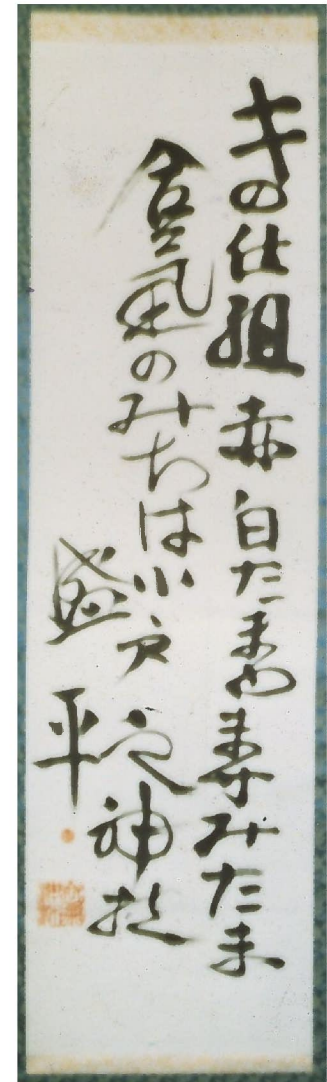 きの仕組赤白たま寿みたま
合氣のみちは小戸之神技
盛平